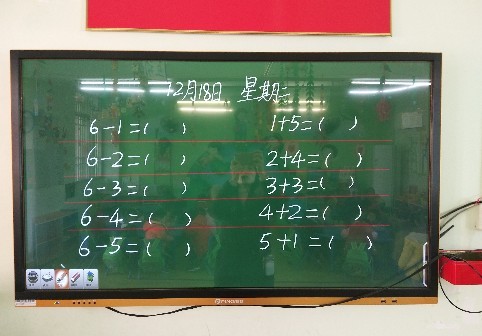 12月18日 星期二
6-1=( ) 1+5=( )
6-2=( ) 2+4=( )
6-3=( ) 3+3=( )
6-4=( ) 4+2=( )
6-5=( ) 5+1=( )